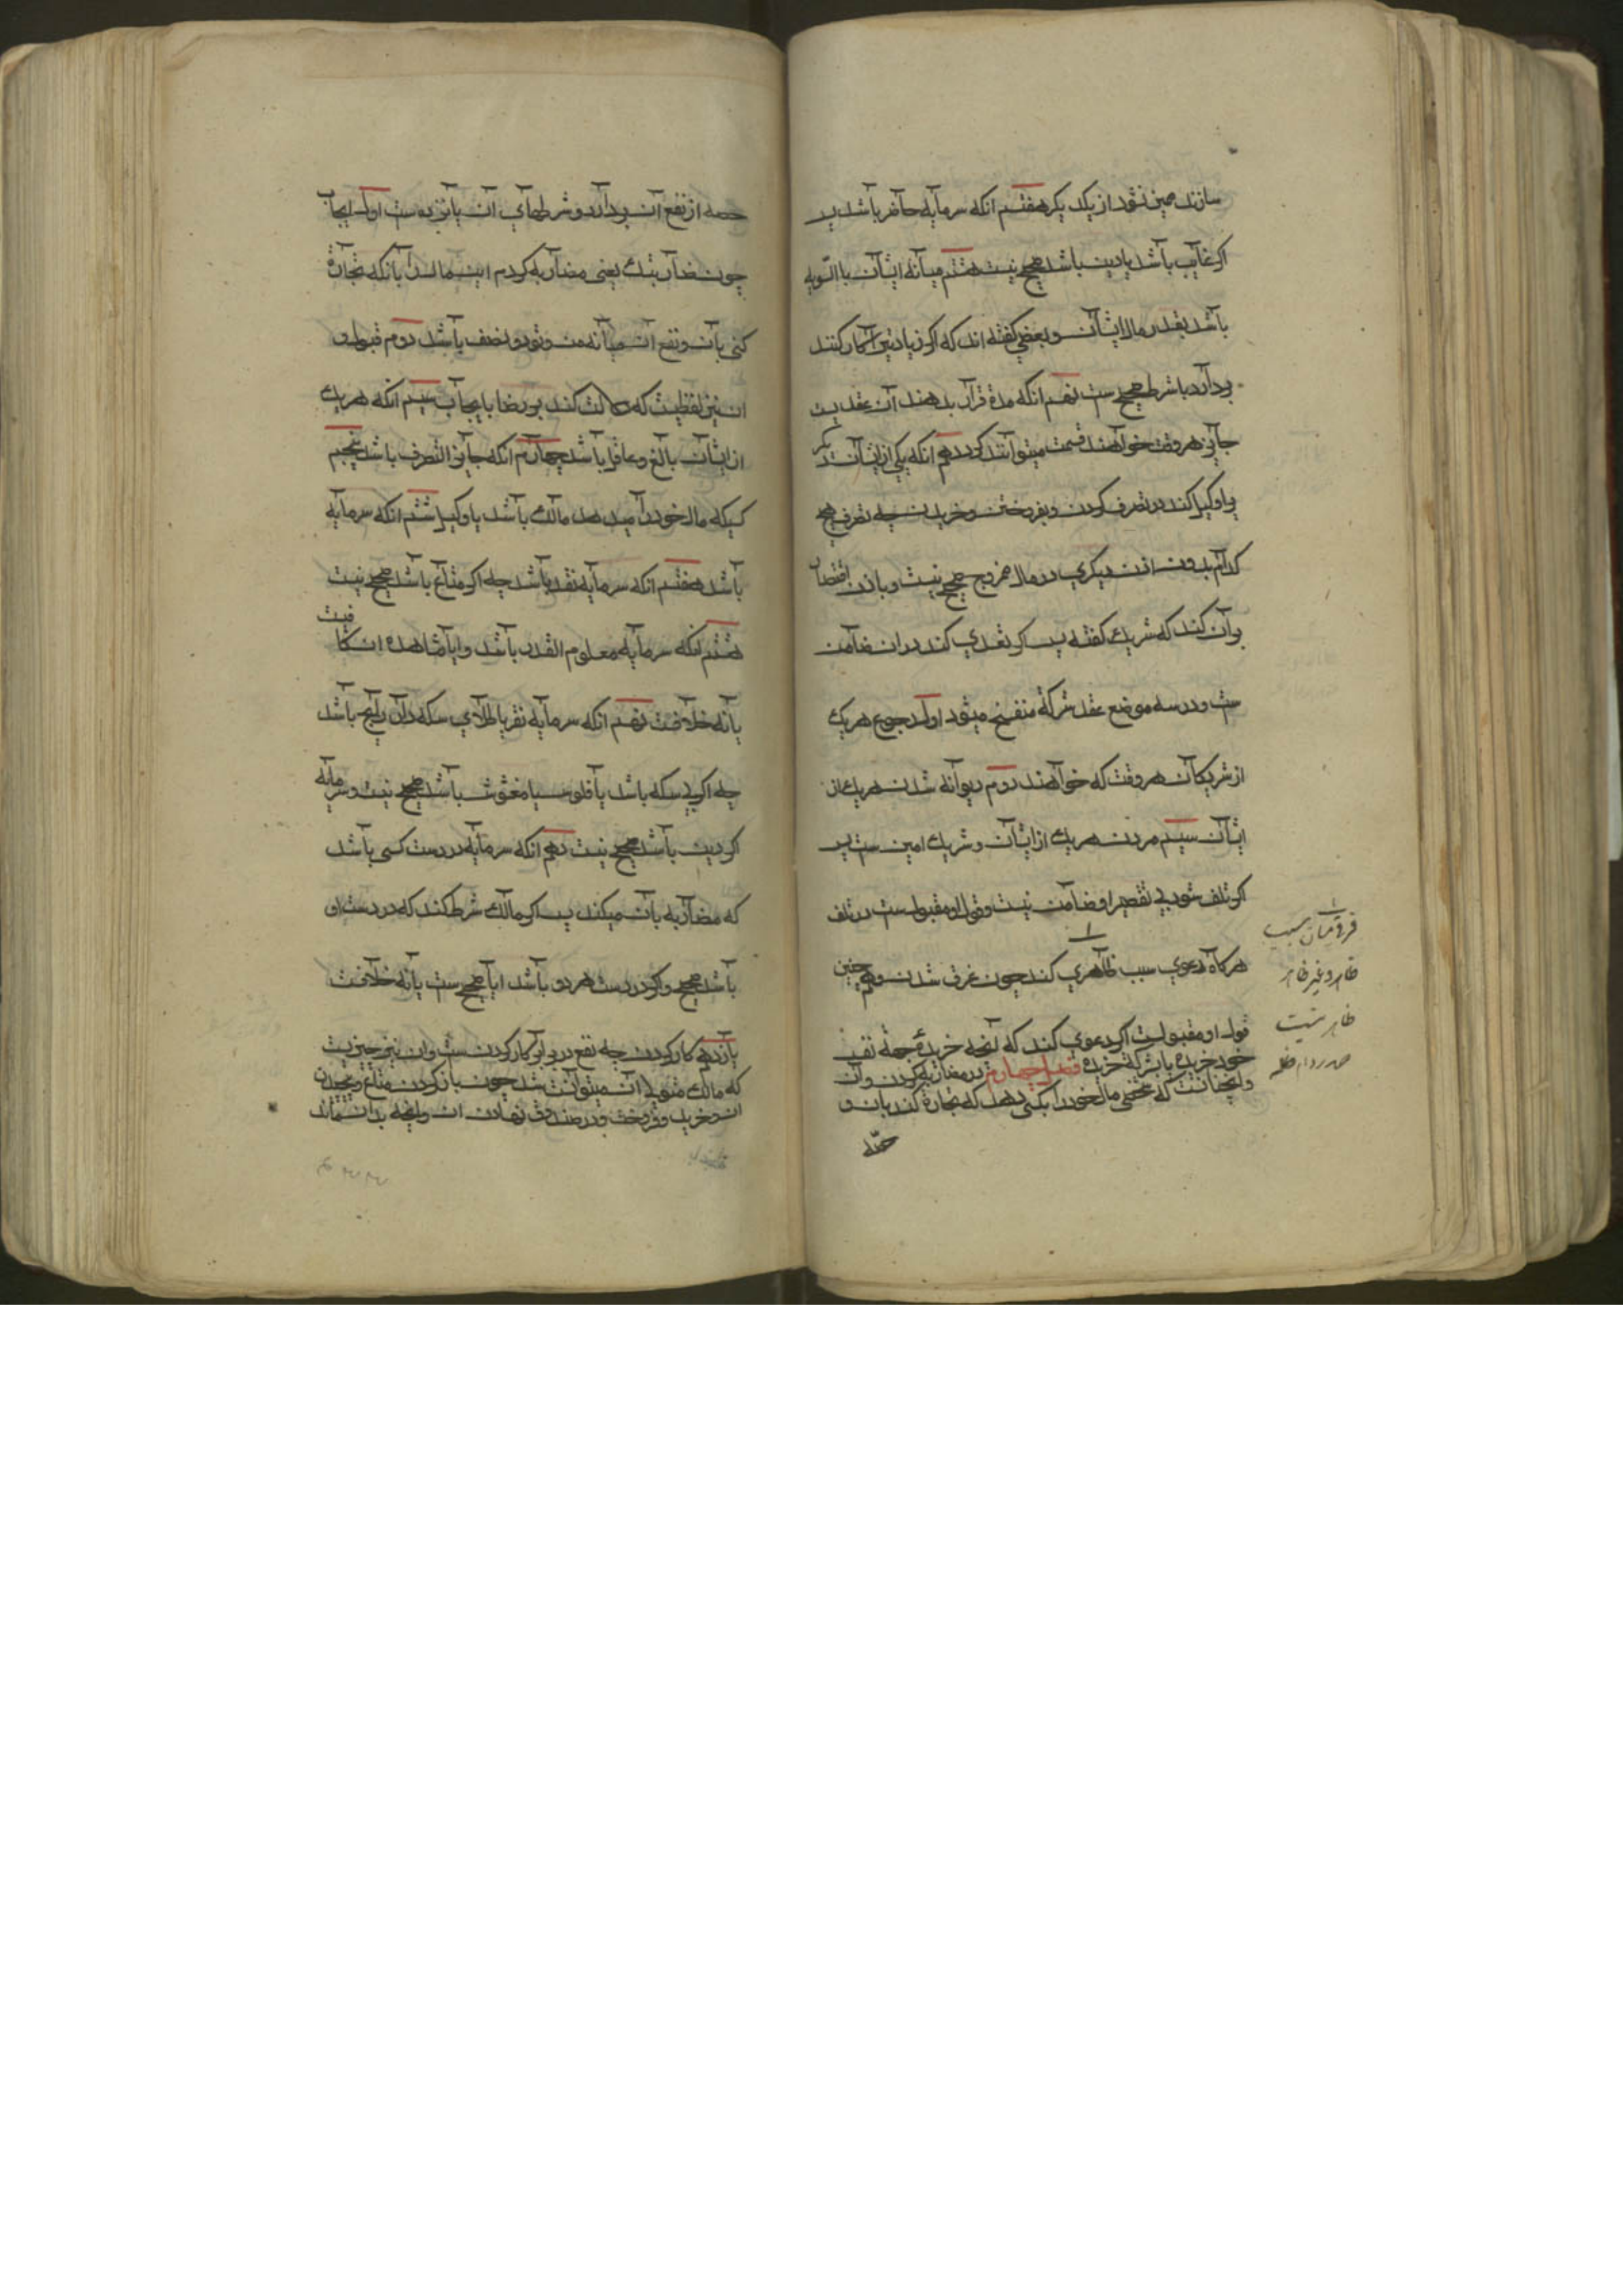 سازند ممیز نشود از یکدیکر هفتم انکه سرمایه حاضر باشد پس
اکر غایب باشد یا دین باشد صحیح نیست هشتم میانه ایشان باالسّویه
باشد بقدر مال ایشان و بعضی کفته اند که اکر زیادتی را کار کننده
بردارد با شرط صحیح ست نهم انکه مدة قرار بدهند آن عقدیست
جایز هر وقت خواهند قسمت میتوانند کرد دهم انکه یکی از ایشان دیکر
یرا وکیل کند در تصرف کردن و بفروختن و خریدن چه تصرف هیچ
کدام بدون اذن دیکری در مال ممزوج صحیح نیست و باذن اقتصار
بر آن کند که شریک کفته پس اکر تعدی کند در ان ضامن
ست و در سه موضع عقد شرکة منفسخ میشود اول رجوع هریک
از شریکان هر وقت که خواهند دوم دیوانه شدن هریک از
ایشان سیم مردن هریک از ایشان و شریک امین ست پس
اکر تلف شود بی تقصیر او ضامن نیست و قول او مقبول ست در تلف
هرکاه دعوی سبب ظاهری کند چون غرق شدن و همچنین
قول او مقبولست اکر دعوی کند که آنچه خریده بجهة نفس
خود خریده یا بشرکة خریده فصل چهارم در مضاربه کردن و آن
وانچنانست که شخصی مال خود را بکسی دهد که تجارة کند بان و
حصّه
فرق میان سبب
ظاهر و غیر ظاهر
ظاهر نیست
حصه از نفع آن بردارد و شرطهای آن پانزده ست اول ایجاب
چون ضاربتک یعنی مضاربه کردم این مال را بآنکه تجارة
کنی بآن و نفع آن میانه من و تو دو نصف باشد دوم قبول و
ان نیز لفظیست که دلالت کند بر رضا بایجاب سیم انکه هریک
از ایشان بالغ و عاقل باشد چهارم انکه جایز التصرف باشد پنجم
کسیکه مال خود را میدهد مالک باشد یا وکیل ششم انکه سرمایه
باشد هفتم انکه سرمایه نقد باشد چه اکر متاع باشد صحیح نیست
هشتم انکه سرمایه معلوم القدر باشد وایا مشاهده ان کافیست
یا نه خلافست نهم انکه سرمایه نقره یا طلای سکه دار رایج باشد
چه اکر بی سکه باشد یا فلوس یا مغشوش باشد صحیح نیست و سرمایه
اکر دین باشد صحیح نیست دهم انکه سرمایه در دست کسی باشد
که مضاربه بآن میکند پس اکر مالک شرط کند که در دست او
باشد صحیح و اکر در دست هر دو باشد ایا صحیح ست یا نه خلافست
یازدهم کار کردن چه نفع در برابر کار کردن ست و ان نیز چیزیست
که مالک متولی ان میتوانست شد چون باز کردن متاع و پیچیدن
ان و خرید و فروخت و در صندوق نهادن ان و انچه بدان ماند